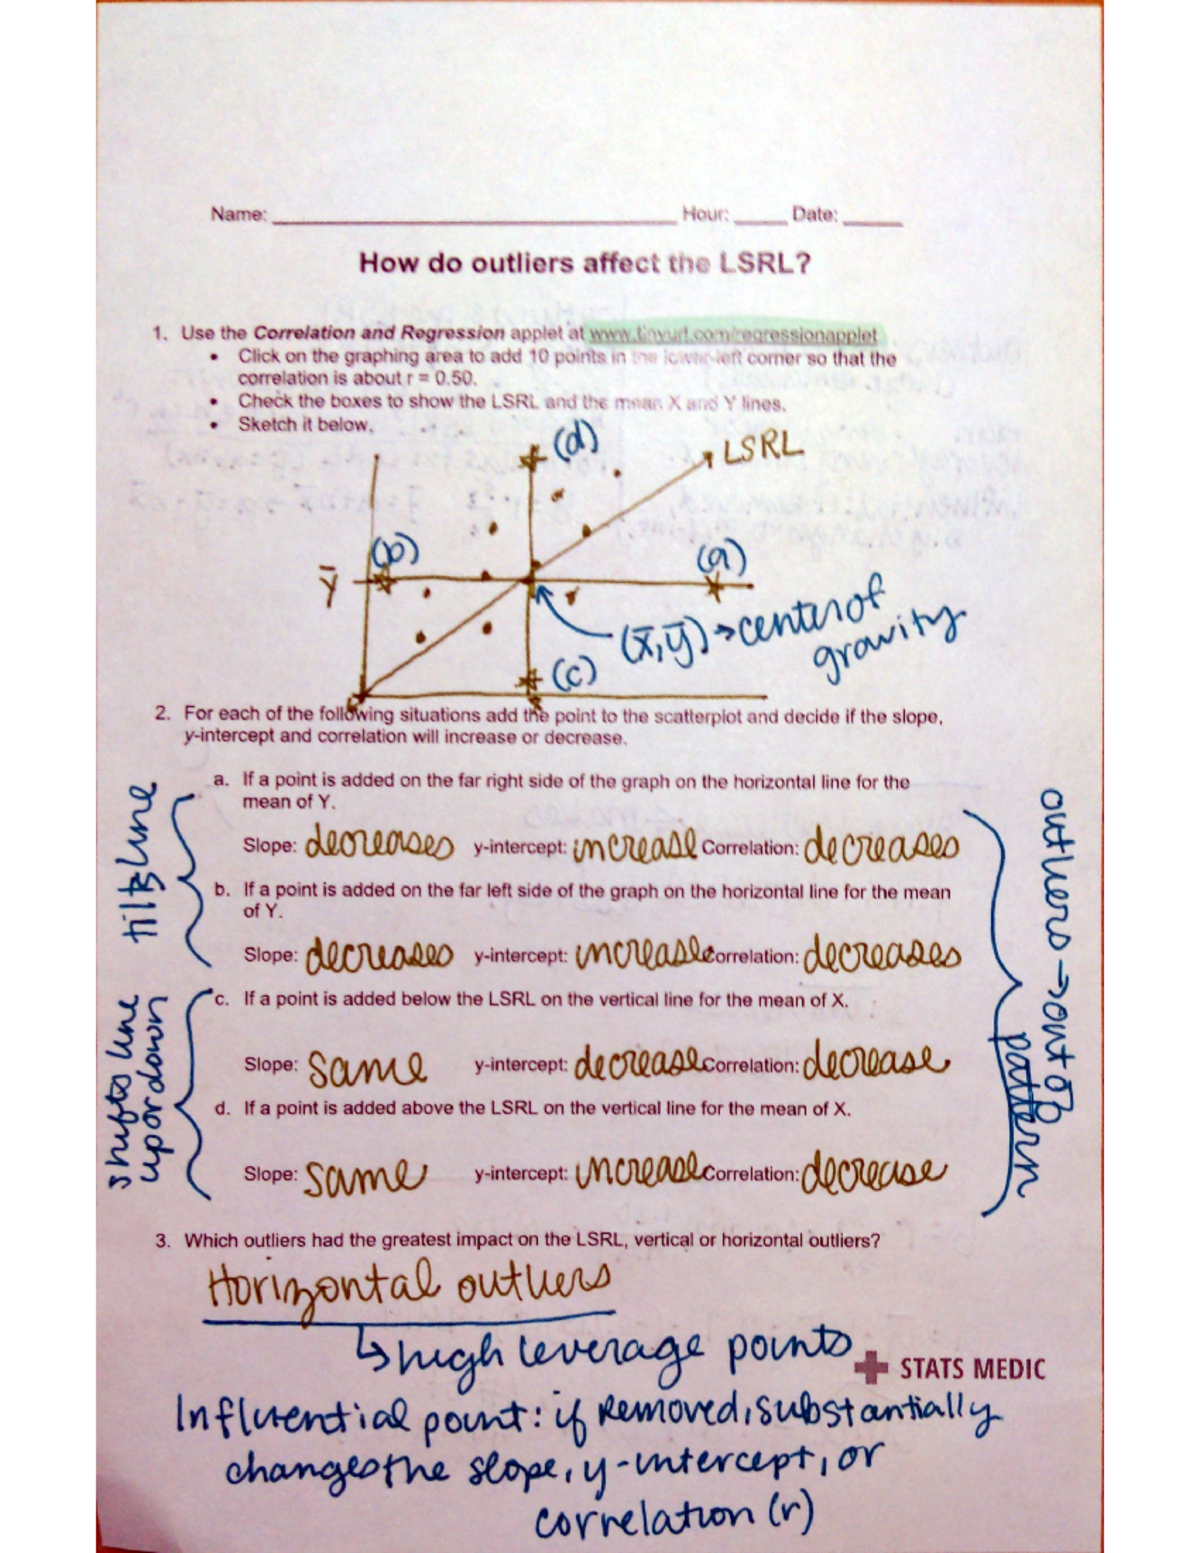 Name: ______ Hour: ______ Date: ______
How do outliers affect the LSRL?
1. Use the Correlation and Regression applet at www.tinyurl.com/regressionapplet
• Click on the graphing area to add 10 points in the lower-left corner so that the
correlation is about r = 0.50.
• Check the boxes to show the LSRL and the mean X and Y lines.
• Sketch it below.
(d)
LSRL
(b)
(a)
Y̅
(x̅,y̅) → center of
gravity
(c)
2. For each of the following situations add the point to the scatterplot and decide if the slope,
y-intercept and correlation will increase or decrease.
a. If a point is added on the far right side of the graph on the horizontal line for the
mean of Y.
Slope: decreases y-intercept: increase Correlation: decreases
b. If a point is added on the far left side of the graph on the horizontal line for the mean
of Y.
Slope: decreases y-intercept: increase Correlation: decreases
tilts line
c. If a point is added below the LSRL on the vertical line for the mean of X.
Slope: same y-intercept: decrease Correlation: decrease
d. If a point is added above the LSRL on the vertical line for the mean of X.
Slope: same y-intercept: increase Correlation: decrease
shifts line
up or down
outliers → out of
pattern
3. Which outliers had the greatest impact on the LSRL, vertical or horizontal outliers?
Horizontal outliers
↳ high leverage points
STATS MEDIC
Influential point: if removed, substantially
changes the slope, y-intercept, or
correlation (r)